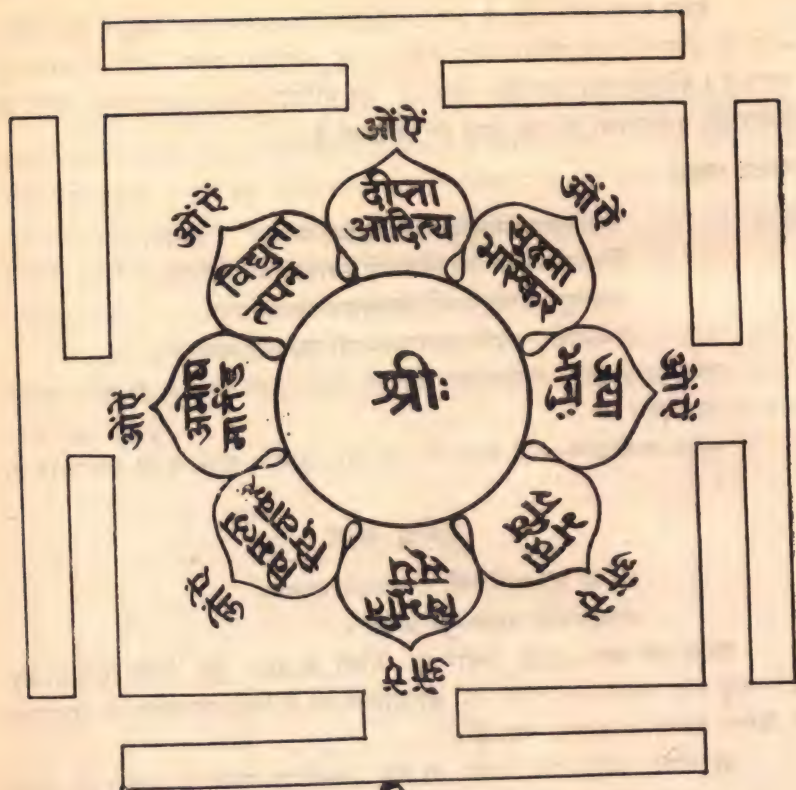 श्रीं
ओं ऐं
दीप्ता
आदित्य
ओं ऐं
सुक्ष्मा
भास्कर
ओं ऐं
जया
भानुः
ओं ऐं
भद्रा
रवि
ओं ऐं
विभूति
सूर्य
ओं ऐं
विमला
दिवाकर
ओं ऐं
अमोघ
मार्तंड
ओं ऐं
विद्युता
तपन